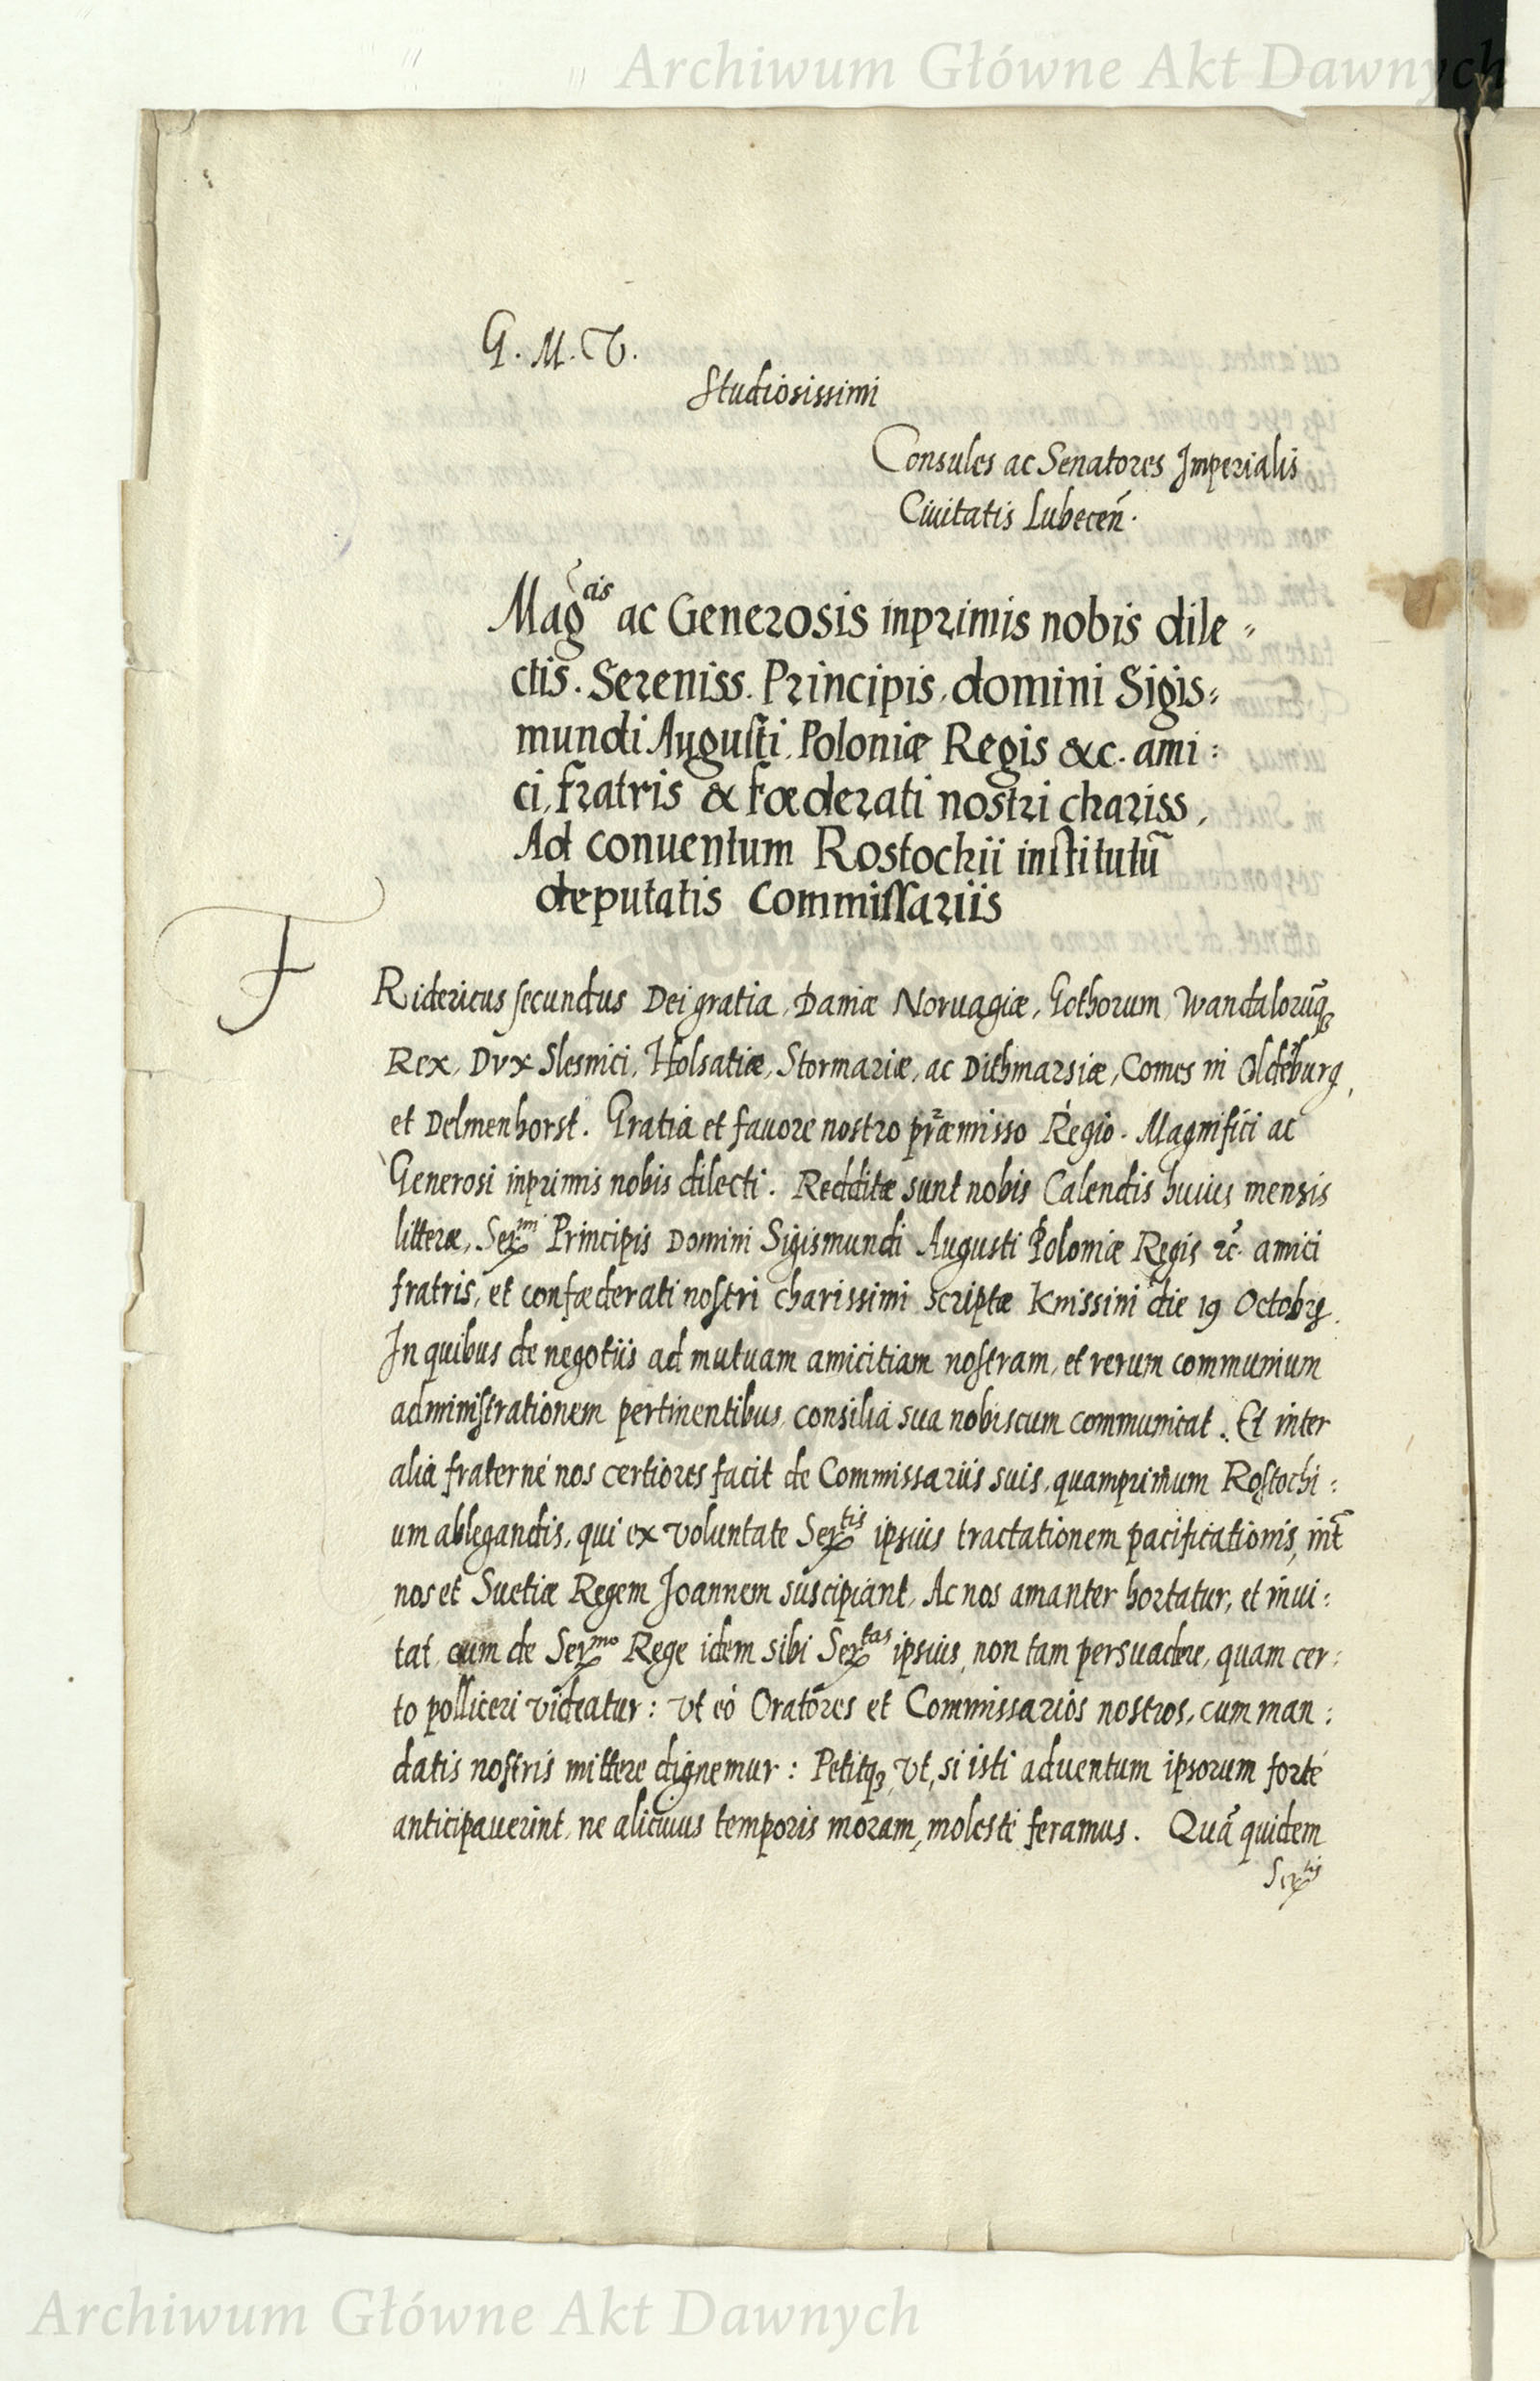 Archiwum Główne Akt Dawnych
G. M. V.
Studiosissimi
Consules ac Senatores Imperialis
Ciuitatis Lubecen̄.
Mag̃cis ac Generosis inprimis nobis dile=
ctis. Sereniss. Principis, domini Sigis=
mundi Augusti, Poloniæ Regis &c. ami=
ci, fratris & fœderati nostri chariss,
Ad conuentum Rostochii institutū
deputatis Commissariis
FRidericus secundus Dei gratia, Daniæ Noruagiæ, Gothorum, Wandalorūq3
Rex, Dvx Slesuici, Holsatiæ, Stormariæ, ac Dithmarsiæ, Comes in Oldēburg,
et Delmenhorst. Gratia et fauore nostro præmisso Regio. Magnifici ac
Generosi inprimis nobis dilecti. Redditæ sunt nobis Calendis huius mensis
litteræ, Sermi Principis Domini Sigismundi Augusti Poloniæ Regis &c. amici
fratris, et confœderati nostri charissimi scriptæ Knissini die 19 Octobrs.
In quibus de negotiis ad mutuam amicitiam nostram, et rerum communium
administrationem pertinentibus, consilia sua nobiscum communicat. Et inter
alia fraternè nos certiores facit de Commissariis suis, quamprimum Rostochi=
um ablegandis, qui ex voluntate Sertis ipsius tractationem pacificationis, int̄
nos et Suetiæ Regem Joannem suscipiant, Ac nos amanter hortatur, et inui=
tat, cum de Sermo Rege idem sibi Sertas ipsius, non tam persuadere, quam cer=
to polliceri videatur: vt eò Oratores et Commissarios nostros, cum man=
datis nostris mittere dignemur: Petitq3, vt, si isti aduentum ipsorum fortè
anticipauerint, ne alicuius temporis moram, molestè feramus. Quā quidem
Sertis
Archiwum Główne Akt Dawnych